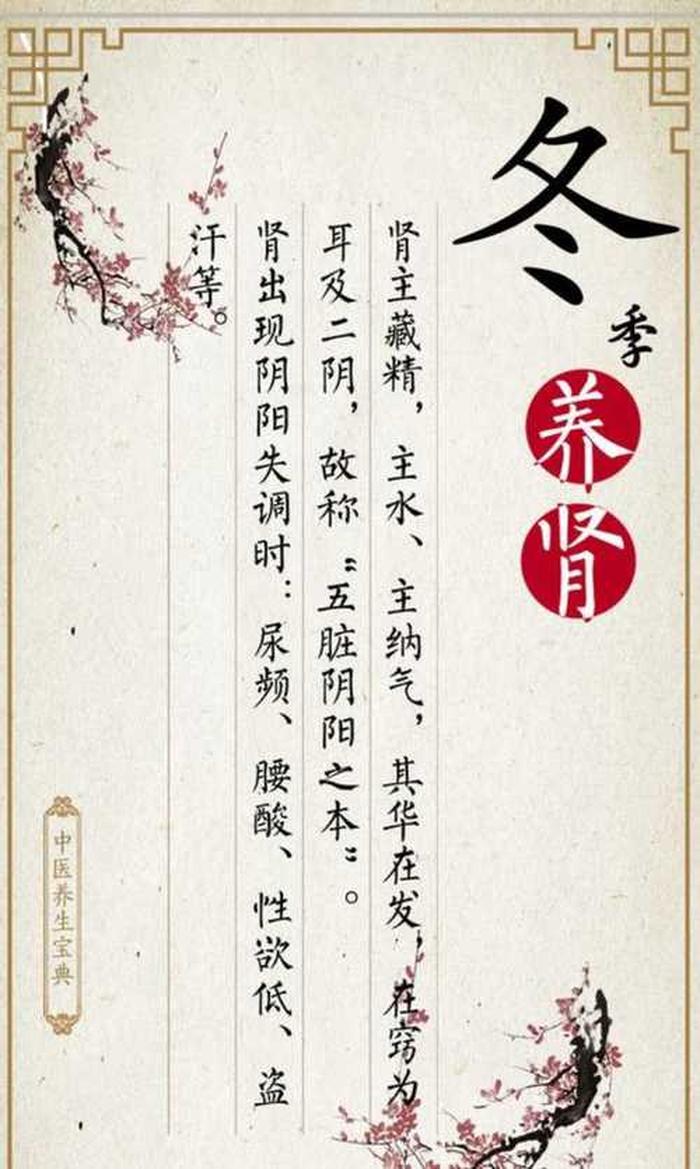 冬季养肾
肾主藏精，主水、主纳气，其华在发，在窍为
耳及二阴，故称“五脏阴阳之本”。
肾出现阴阳失调时：尿频、腰酸、性欲低、盗
汗等。
中医养生宝典